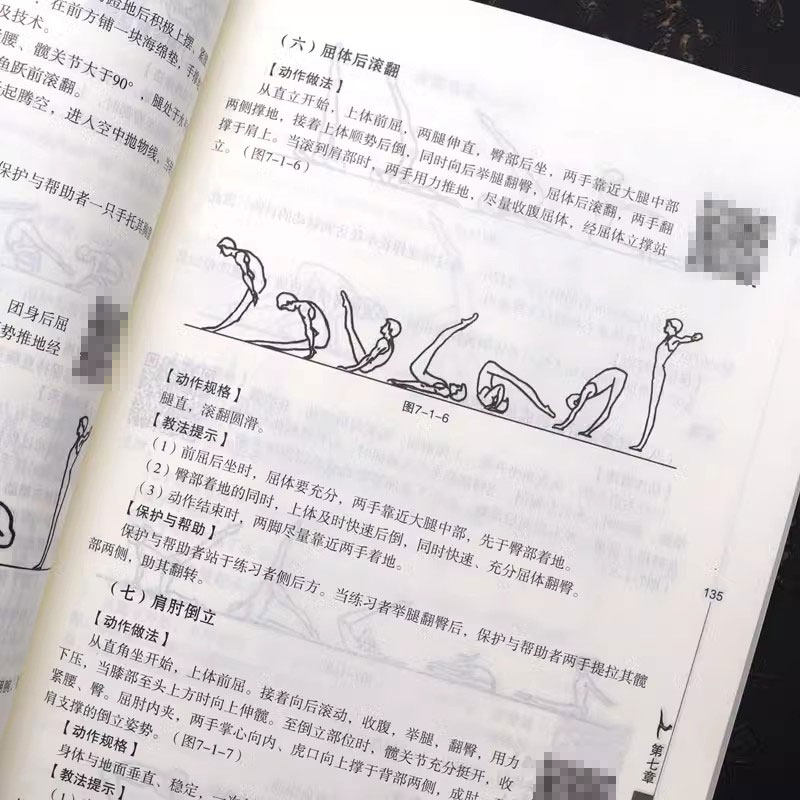 蹬地后积极上摆、
，在前方铺一块海绵垫，手撑
及技术。
腰、髋关节大于90°，腿处于水
鱼跃前滚翻。
起腾空，进入空中抛物线，
保护与帮助者一只手托其胸
团身后屈
势推地经
（六）屈体后滚翻
【动作做法】
从直立开始，上体前屈，两腿伸直，臀部后坐，两手靠近大腿中部
两侧撑地，接着上体顺势后倒，同时向后举腿翻臀，屈体后滚翻，两手翻
撑于肩上。当滚到肩部时，两手用力推地，尽量收腹屈体，经屈体立撑站
立。（图7-1-6）
图7-1-6
【动作规格】
腿直，滚翻圆滑。
【教法提示】
（1）前屈后坐时，屈体要充分，两手靠近大腿中部，先于臀部着地。
（2）臀部着地的同时，上体及时快速后倒，同时快速、充分屈体翻臀。
（3）动作结束时，两脚尽量靠近两手着地。
【保护与帮助】
保护与帮助者站于练习者侧后方。当练习者举腿翻臀后，保护与帮助者两手提拉其髋
部两侧，助其翻转。
135
（七）肩肘倒立
【动作做法】
从直角坐开始，上体前屈。接着向后滚动，收腹，举腿，翻臀，用力
下压，当膝部至头上方时向上伸髋。至倒立部位时，髋关节充分挺开，收
紧腰、臀。屈肘内夹，两手掌心向内、虎口向上撑于背部两侧，成肘、
肩支撑的倒立姿势。（图7-1-7）
【动作规格】
身体与地面垂直、稳定，一
【教法提示】
第七章